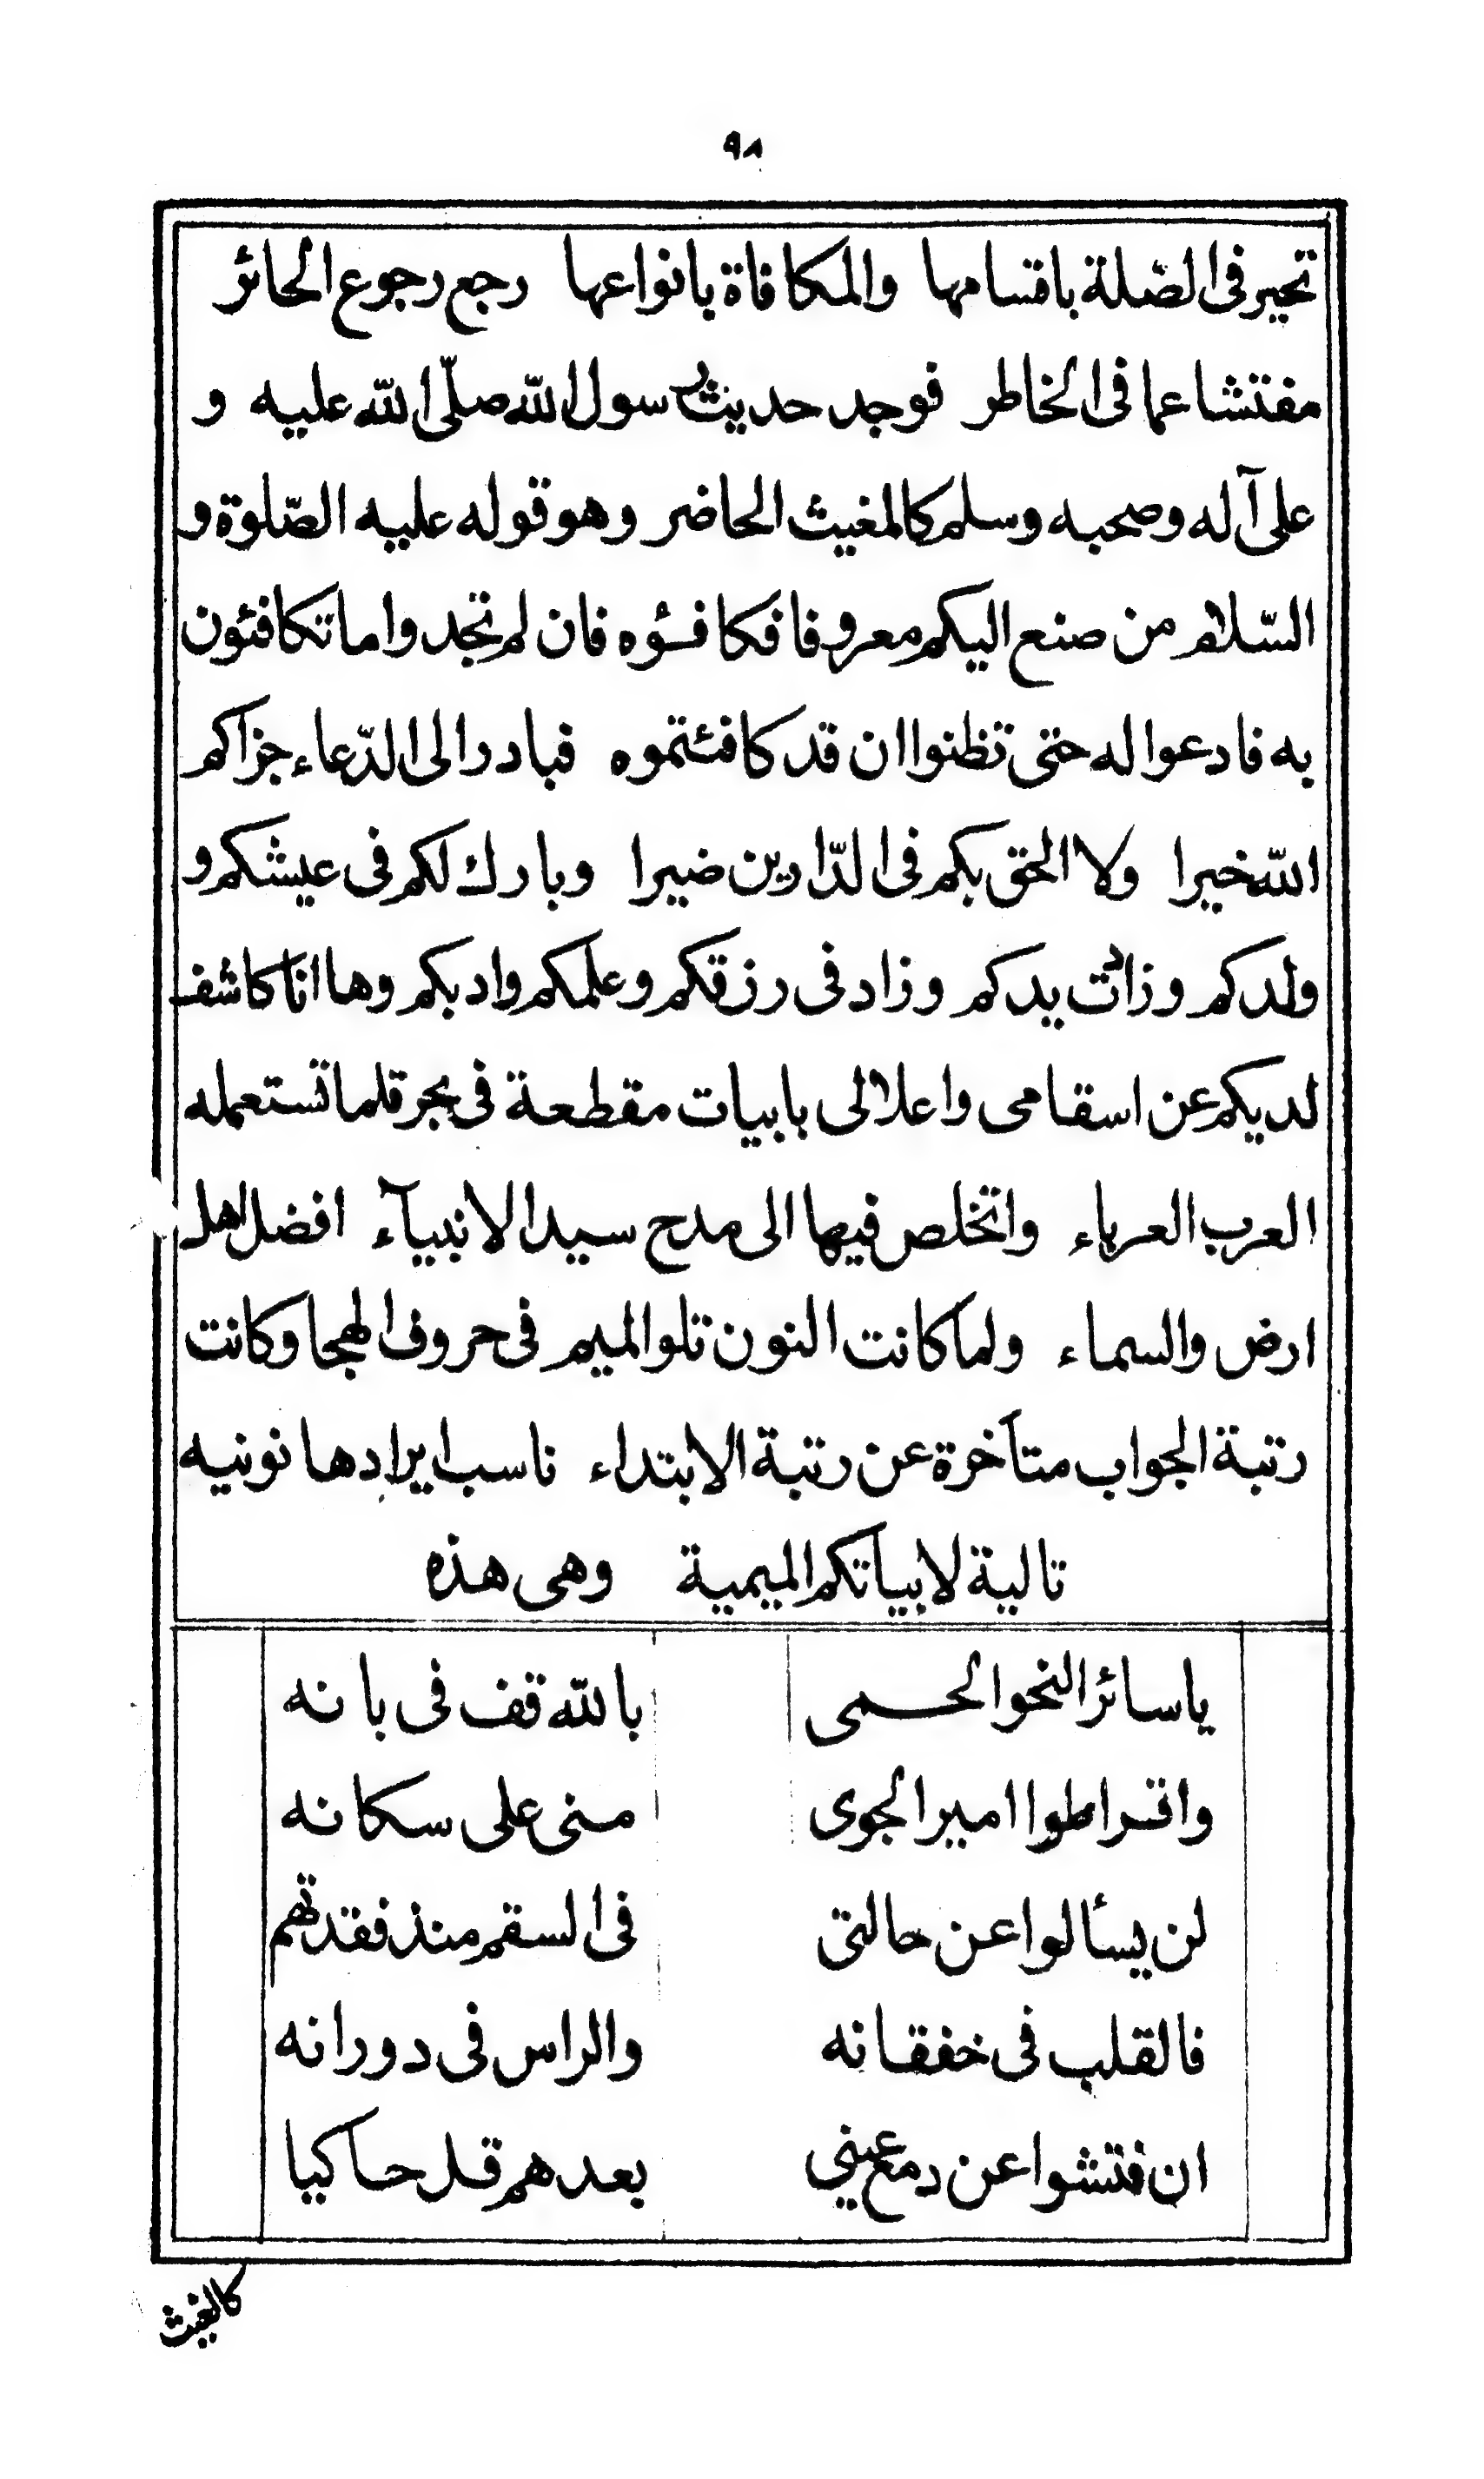 ٩٨
تحير فى الصّلة باقسامها والمكافاة بانواعها رجع رجوع الحائر
مفتشا عما فى الخاطر فوجد حديث رسول الله صلّى الله عليه و
على آله وصحبه وسلم كالمغيث الحاضر وهو قوله عليه الصّلوة و
السّلام من صنع اليكم معروفا فكافئوه فان لم تجدوا ما تكافئون
به فادعوا له حتى تظنوا ان قد كافئتموه فبادر الى الدّعاء جزاكم
الله خيرا ولا الحق بكم فى الدّارين ضيرا وبارك لكم فى عيشكم و
ولدكم وزانت يدكم وزاد فى رزقكم وعلمكم وادبكم وها انا كاشف
لديكم عن اسقامى واعلالى بابيات مقطعة فى بحر قلما تستعمله
العرب العرباء واتخلص فيها الى مدح سيد الانبيآء افضل اهل
ارض والسماء ولما كانت النون تلو الميم فى حروف الهجا وكانت
رتبة الجواب متآخرة عن رتبة الابتداء ناسب ايرادها نونيه
تالية لابياتكم الميمية وهى هذه
ياسائر النحو الحمى بالله قف فى بانه
واقراطوا امير الجوى منى على سكانه
لن يسألوا عن حالتى فى السقم منذ فقدتهم
فالقلب فى خفقانه والراس فى دورانه
ان فتشوا عن دمع عيني بعدهم قل حاكيا
كالغيث